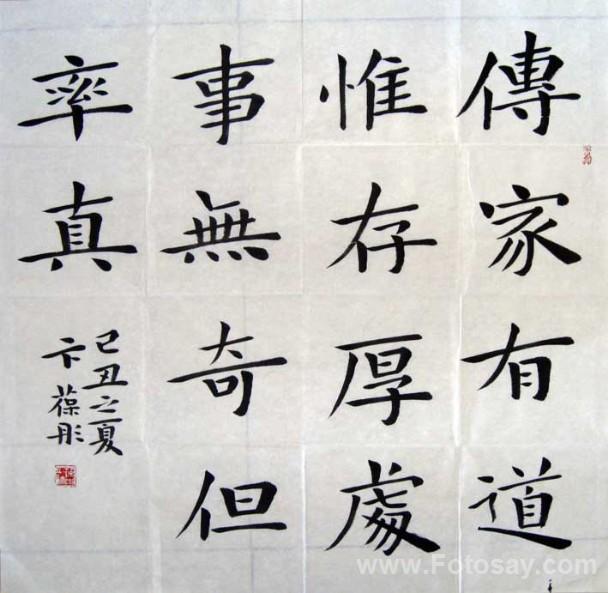 傳家有道
惟存厚處
事無奇但
率真
己丑之夏
卞葆彤
www.Fotosay.com